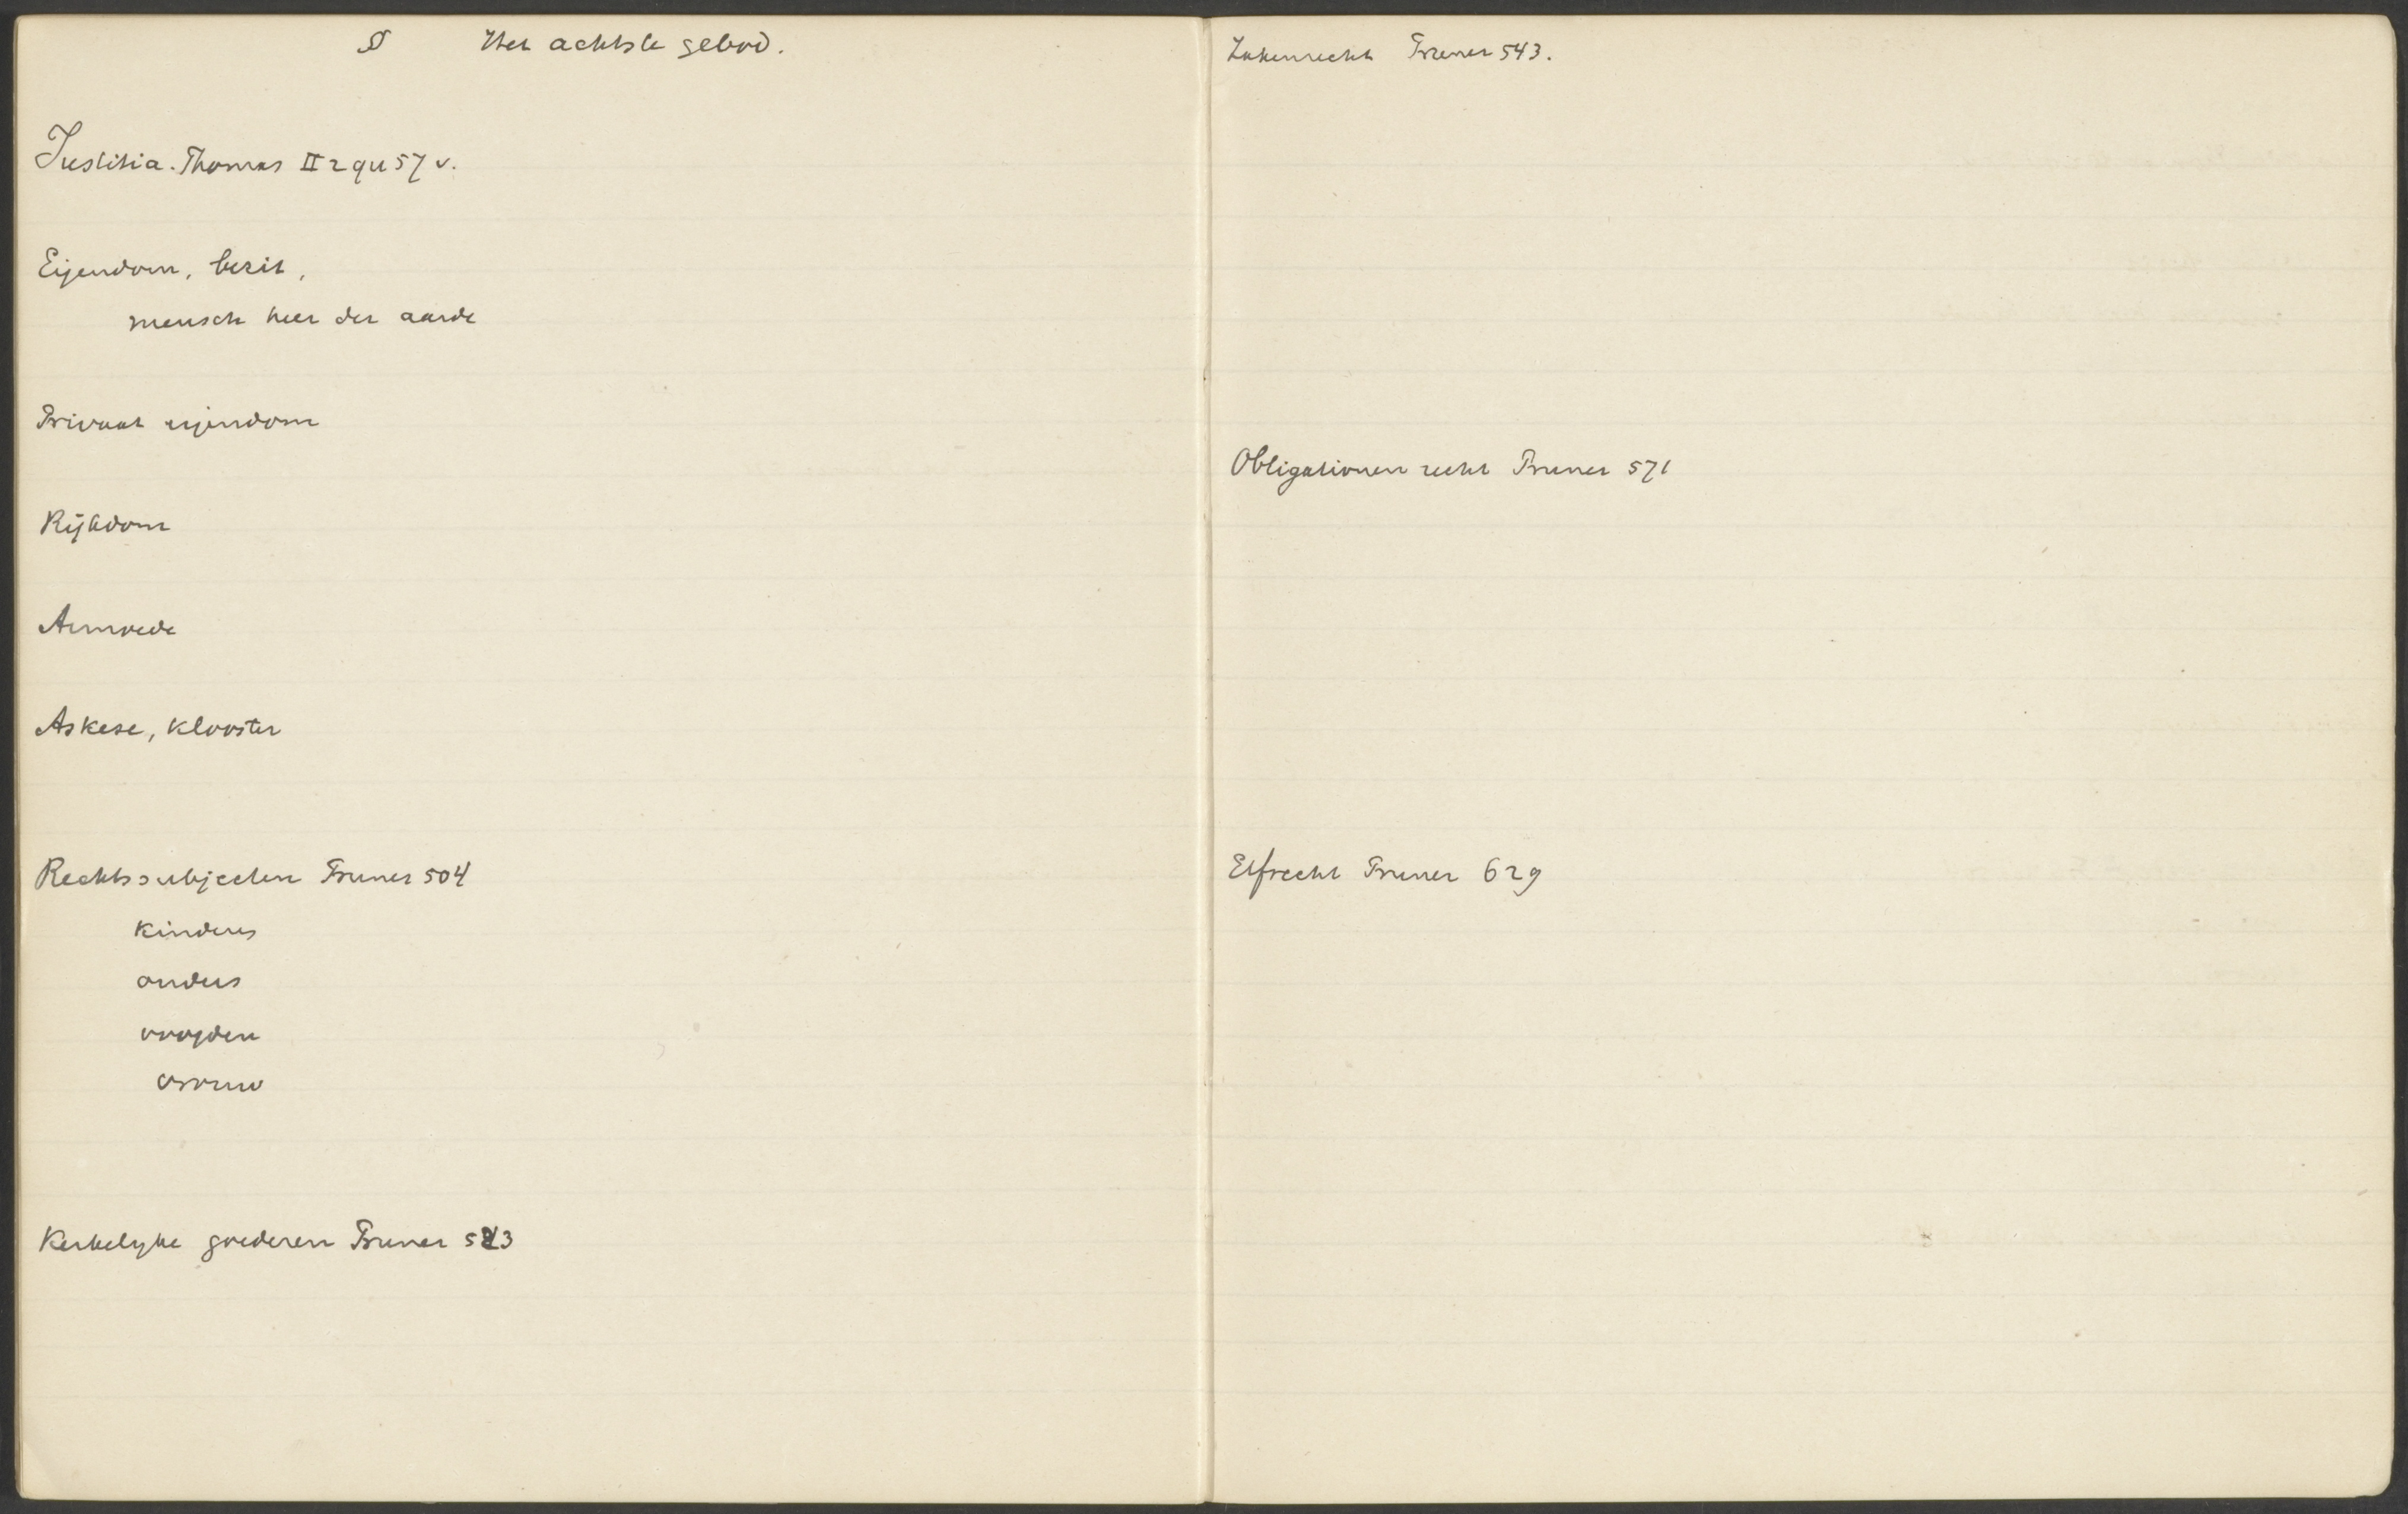 § Het achtste gebod.
Justitia. Thomas II 2 qu 57 v.
Eigendom, bezit,
mensch heer der aarde
Privaat eigendom
Rijkdom
Armoede
Askese, klooster
Rechtssubjecten Pruner 504
kinders
ouders
voogden
vrouw
Kerkelyke goederen Pruner 523
Zakenrecht Pruner 543.
Obligationen recht Pruner 571
Erfrecht Pruner 629